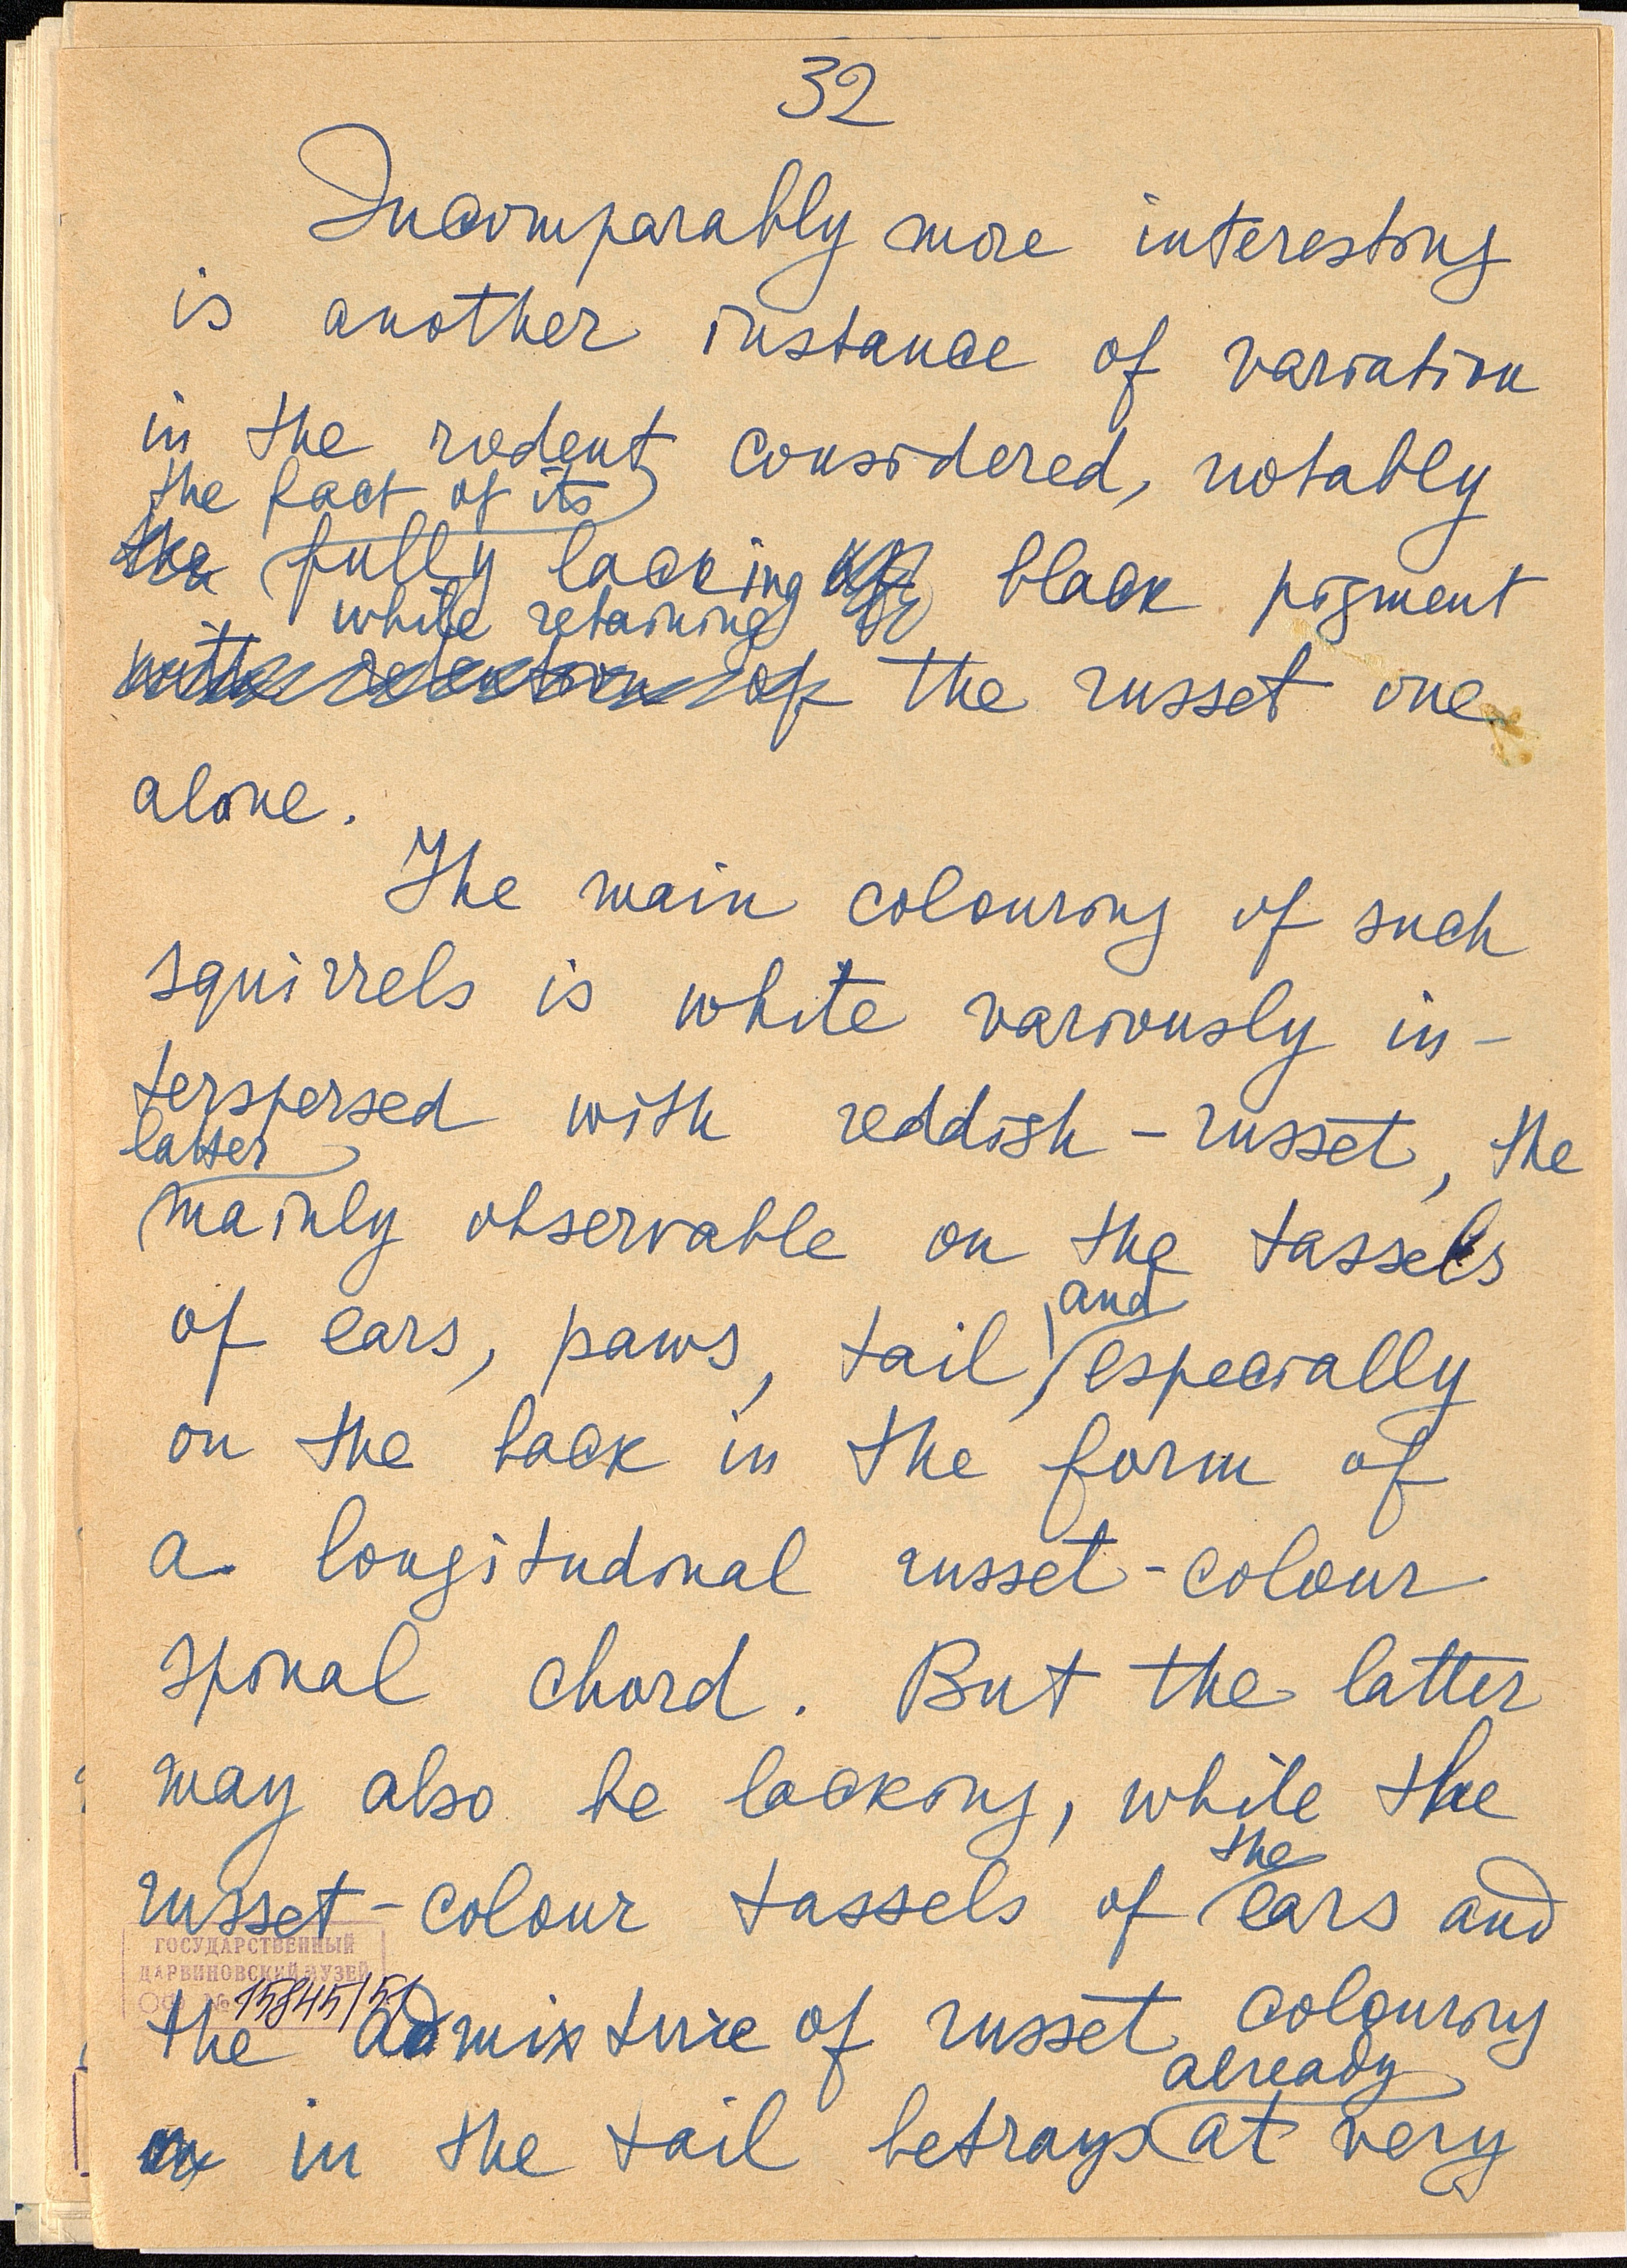 32
Incomparably more interesting
is another instance of variation
in the rodent considered, notably
the fact of its
the fully lacking of black pigment
while retaining
with retention of the russet one
alone.
The main colouring of such
squirrels is white variously in-
terspersed with reddish-russet, the
latter
mainly observable on the tassels
and
of ears, paws, tail, especially
on the back in the form of
a longitudinal russet-colour
spinal chord. But the latter
may also be lacking, while the
the
russet-colour tassels of ears and
ГОСУДАРСТВЕННЫЙ
ДАРВИНОВСКИЙ МУЗЕЙ
ОФ № 15845/51
the admixture of russet colouring
already
in the tail betrays at very